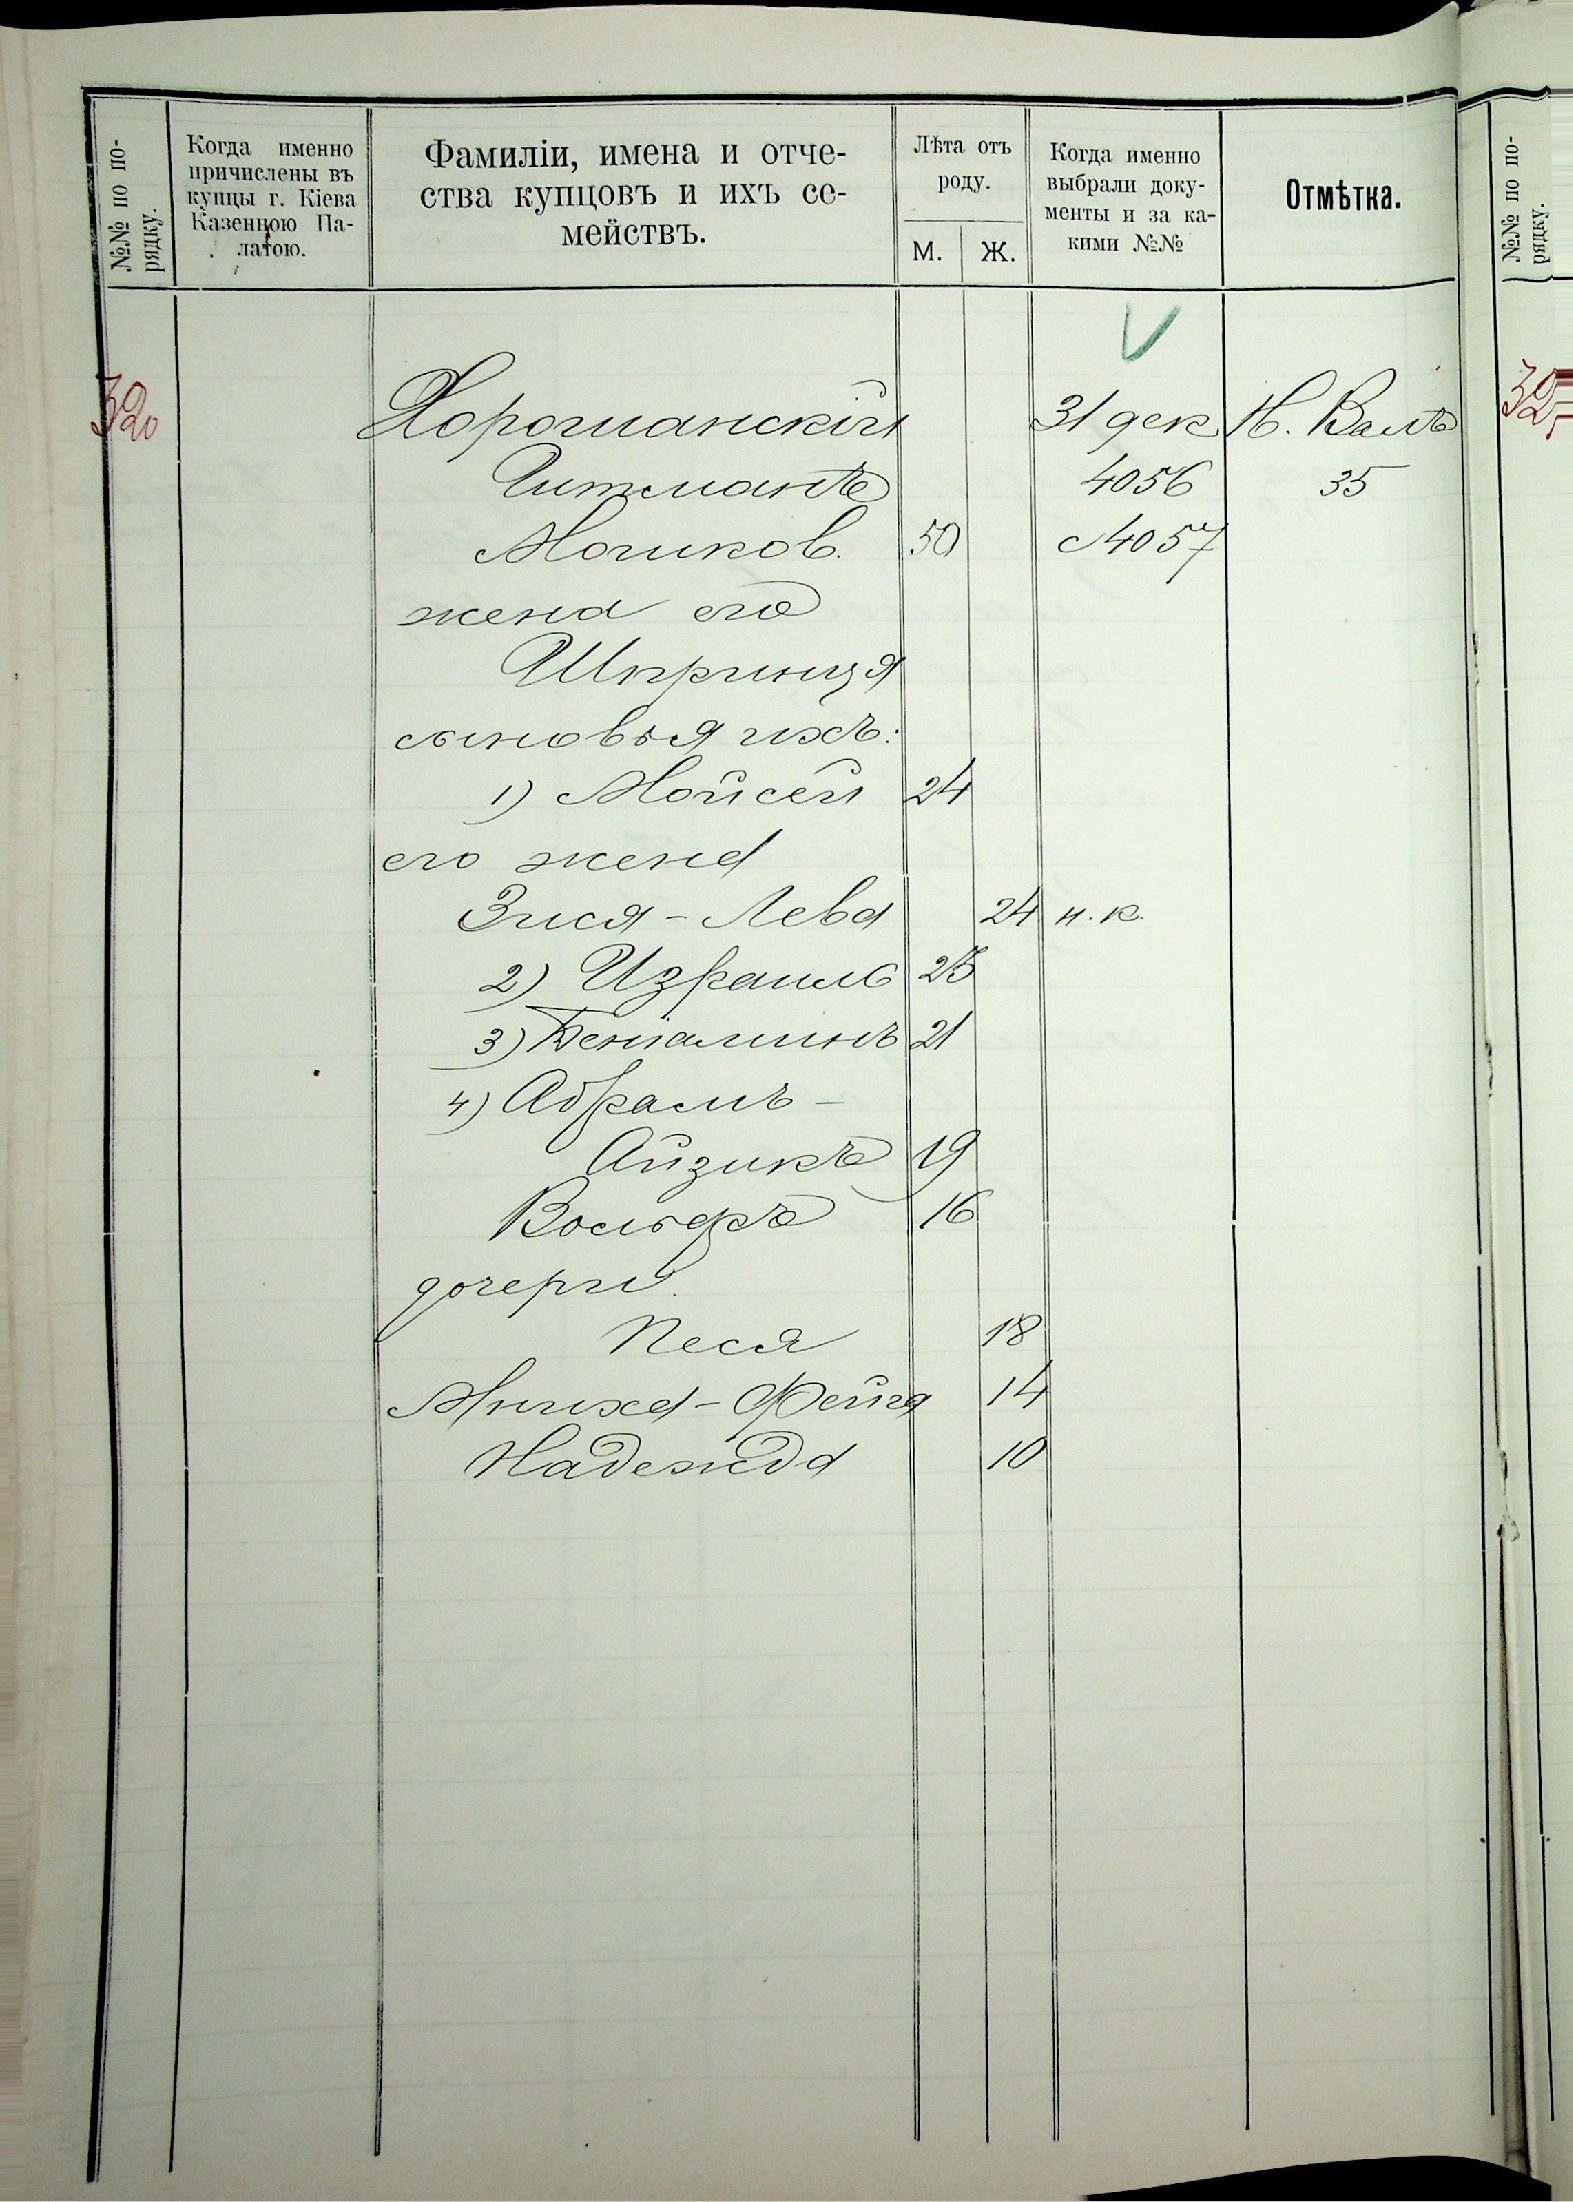 №№ по по-
рядку.
Когда именно
причислены въ
купцы г. Кіева
Казенною Па-
латою.
Фамиліи, имена и отче-
ства купцовъ и ихъ се-
мействъ.
Лѣта отъ
роду.
М. Ж.
Когда именно
выбрали доку-
менты и за ка-
кими №№
Отмѣтка.
№№ по по-
рядку.
320 Хорошанскій 31 дек Н. Валъ
Гитманъ 4056 35
Мошков. 50 4057
жена его
Шпринця
сыновья ихъ:
1) Мойсей 24
его жена
Зися - Лева 24 н. к.
2) Израиль 23
3) Беніаминъ 21
4) Абрамъ -
Айзикъ 19
Вольфъ 16
дочери.
Песя 18
Мниха - Фейга 14
Надежда 10